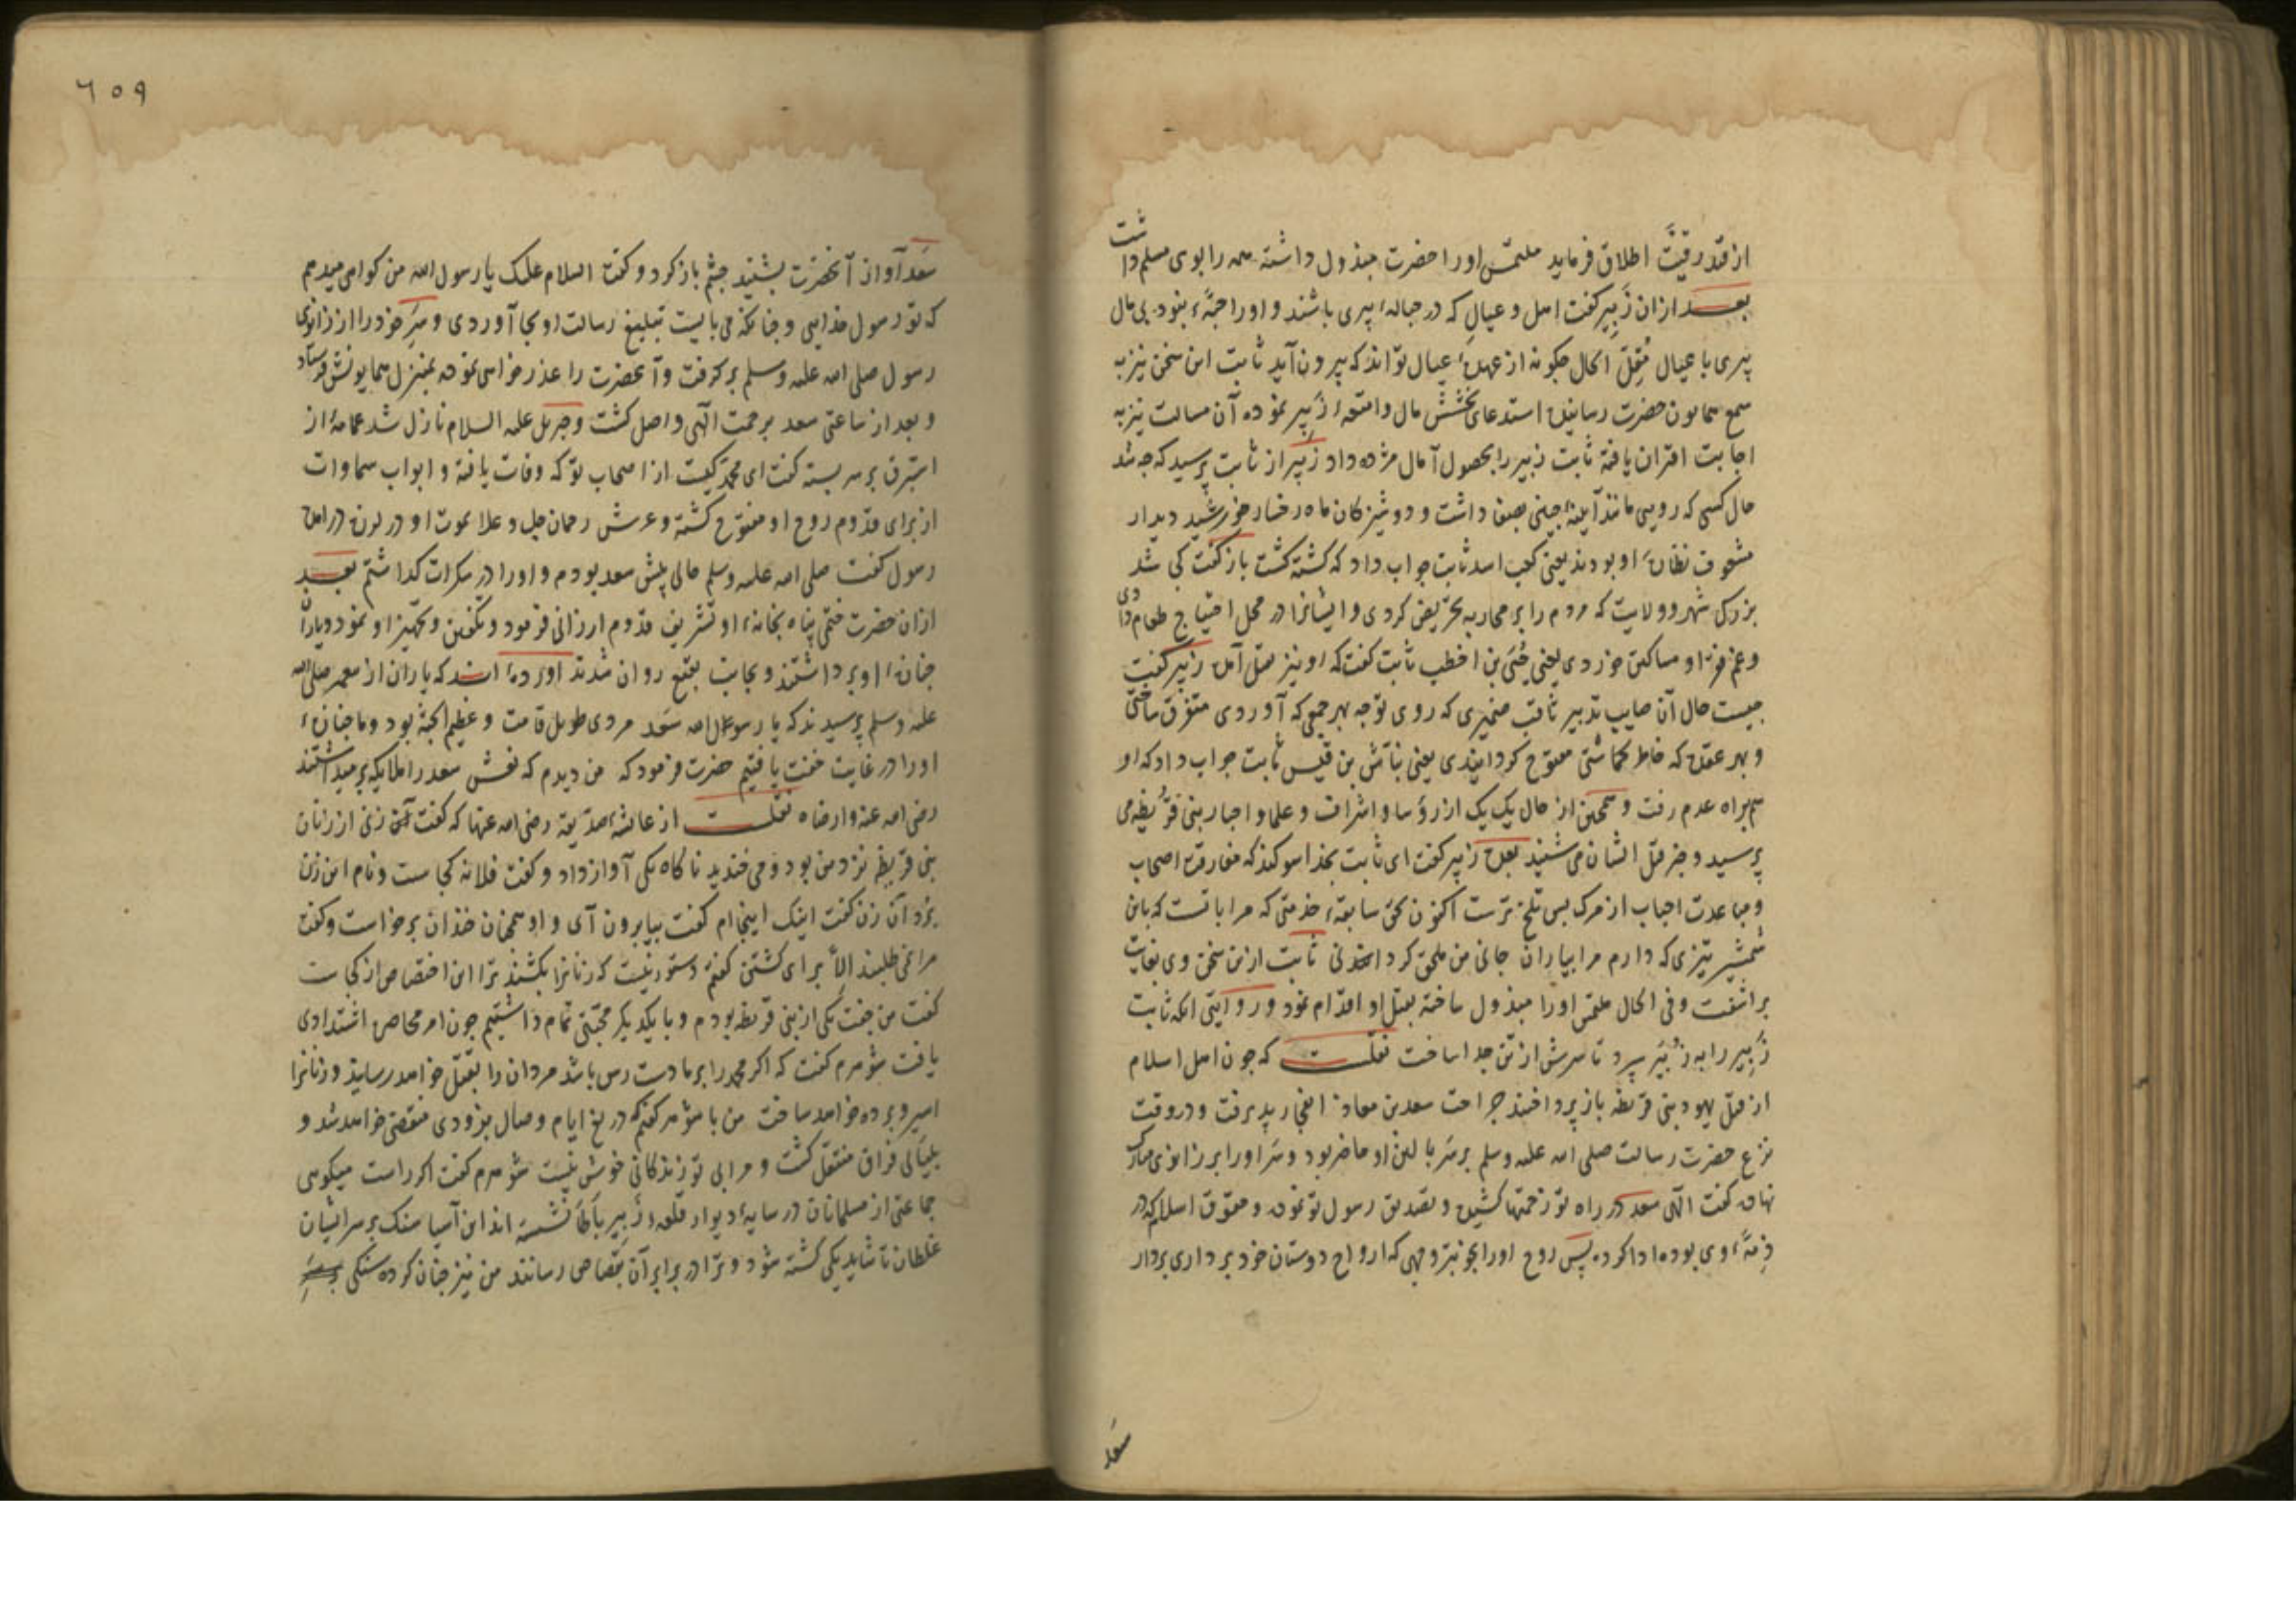 از قید رقیت اطلاق فرماید ملتمس او را حضرت مبذول داشته همه را بوی مسلم داشت
بعد ازان زبیر گفت اهل و عیال که در حباله پیری باشند و او را حبّه نبود بی مال
پیری با عیال مقلّ الحال چکونه از عهده عیال تواند که بیرون آید ثابت این سخن نیز به
سمع همایون حضرت رسانیده استدعای بخشش مال و امتعه زبیر نموده آن مسالت نیز به
اجابت اقتران یافته ثابت زبیر را بحصول آمال مژده داد زبیر از ثابت پرسید که چه شد
حال کسی که رویی مانند آینه چینی بصفا داشت و دوشیزکان ماه رخسار خورشید دیدار
مشعوف نظاره او بودند یعنی کعب اسد ثابت جواب داد که کشته کشت باز گفت کی شد
بزرک شهر و ولایت که مردم را بر محاربه تحریض کردی و ایشانرا در محل احتیاج طعام دادی
و غم فقرا و مساکین خوردی یعنی حُیَی بن اخطب ثابت گفت که او نیز بقتل آمد زبیر گفت
چیست حال آن صایب تدبیر ثاقب ضمیری که روی توجه بهر جمعی که آوردی متفرق ساختی
و بهر عقده که خاطر کماشتی مفتوح کردانیدی یعنی نباش بن قیس ثابت جواب داد که او
هم براه عدم رفت و همچنین از حال یک یک از رؤسا و اشراف و علما و احبار بنی قریظه می
پرسید و خبر قتل ایشان می شنید بعده زبیر گفت ای ثابت بخدا سوکند که مفارقت اصحاب
و مباعدت احباب از مرک بسی تلخ ترست اکنون بحق سابقه خدمتی که مرا با تست که باین
شمشیر تیزی که دارم مرا بیاران جانی من ملحق کردانی ثابت ازین سخن وی بغایت
براشفت و فی الحال ملتمس او را مبذول ساخته بقتل او اقدام نمود و روایتی آنکه ثابت
زبیر را به زُبَیر سپرد تا سرش از تن جدا ساخت نقلست که چون اهل اسلام
از قتل یهود بنی قریظه باز پرداختند جراحت سعد بن معاذ انفجار پذیرفت و در وقت
نزع حضرت رسالت صلی الله علیه وسلم بر سر بالین او حاضر بود و سر او را بر زانوی مبارک
نهاده گفت الهی سعد در راه تو زحمتها کشیده و تصدیق رسول تو نموده و حقوق اسلام که در
ذمّه وی بوده ادا کرده پس روح او را بخوبترین وجهی که ارواح دوستان خود برداری بردار
سعد
٦٥٩
سعد آواز آنحضرت بشنید چشم باز کرد و گفت السلام علیک یا رسول الله من کواهی میدهم
که تو رسول خدایی و چنانکه می بایست تبلیغ رسالت او بجا آوردی و سر خود را از زانوی
رسول صلی الله علیه وسلم بر گرفت و آنحضرت را عذر خواهی نموده بمنزل همایونش فرستاد
و بعد از ساعتی سعد برحمت الهی واصل کشت و جبریل علیه السلام نازل شد عمامهٔ از
استبرق بر سر بسته گفت ای محمد کیست از اصحاب تو که وفات یافته و ابواب سماوات
از برای قدوم روح او مفتوح کشته و عرش رحمان جل و علا بموت او در لرزه درآمده
رسول گفت صلی الله علیه وسلم حالی پیش سعد بودم و او را در سکرات گذاشتم بعد
ازان حضرت ختمی پناه بخانهٔ او تشریف قدوم ارزانی فرمود و تکفین و تجهیز او نمود و یاران
جنازهٔ او برداشتند و بجانب بقیع روان شدند آورده‌اند که یاران از پیغمبر صلی الله
علیه وسلم پرسیدند که یا رسول الله سعد مردی طویل قامت و عظیم الجثه بود و ما جنازهٔ
او را در غایت خفت یافتیم حضرت فرمود که من دیدم که نعش سعد را ملایکه برمیداشتند
رضی الله عنه وارضاه نقلست از عایشهٔ صدیقه رضی الله عنها که گفت زنی از زنان
بنی قریظه نزد من بود و می خندید ناکاه یکی آواز داد و گفت فلانه کجاست و نام این زن
برد آن زن گفت اینک اینجاام گفت بیا بیرون آی و او همچنان خندان برخواست و گفت
مرا نمی طلبند الّا برای کشتن گفتم دستور نیست که زنانرا بکشند ترا این اختصاص از کجاست
گفت من جفت یکی از بنی قریظه بودم و با یکدیکر محبتی تمام داشتیم چون امر محاصره اشتدادی
یافت شوهرم گفت که اکر محمد را بر ما دست رس باشد مردان را بقتل خواهد رسانید و زنانرا
اسیر و برده خواهد ساخت من با شوهر گفتم که دریغ ایام وصال بزودی منقضی خواهد شد و
بلیالی فراق منتقل کشت و مرا بی تو زندکانی خوش نیست شوهرم گفت اکر راست میکویی
جماعتی از مسلمانان در سایهٔ دیوار قلعهٔ زبیر باطا نشسته اند این آسیا سنک بر سر ایشان
غلطان تا شاید یکی کشته شود و ترا در برابر آن بقصاص رسانند من نیز چنان کرده سنکی